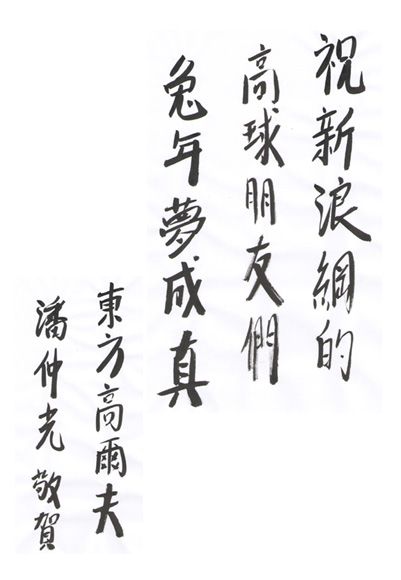 祝新浪網的
高球朋友們
兔年夢成真
東方高爾夫
潘仲光 敬賀